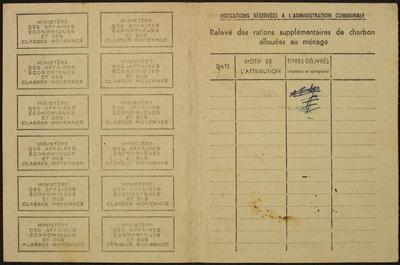 MINISTÈRE
DES AFFAIRES
ÉCONOMIQUES
ET DES
CLASSES MOYENNES
MINISTÈRE
DES AFFAIRES
ÉCONOMIQUES
ET DES
CLASSES MOYENNES
MINISTÈRE
DES AFFAIRES
ÉCONOMIQUES
ET DES
CLASSES MOYENNES
MINISTÈRE
DES AFFAIRES
ÉCONOMIQUES
ET DES
CLASSES MOYENNES
MINISTÈRE
DES AFFAIRES
ÉCONOMIQUES
ET DES
CLASSES MOYENNES
MINISTÈRE
DES AFFAIRES
ÉCONOMIQUES
ET DES
CLASSES MOYENNES
MINISTÈRE
DES AFFAIRES
ÉCONOMIQUES
ET DES
CLASSES MOYENNES
MINISTÈRE
DES AFFAIRES
ÉCONOMIQUES
ET DES
CLASSES MOYENNES
MINISTÈRE
DES AFFAIRES
ÉCONOMIQUES
ET DES
CLASSES MOYENNES
MINISTÈRE
DES AFFAIRES
ÉCONOMIQUES
ET DES
CLASSES MOYENNES
MINISTÈRE
DES AFFAIRES
ÉCONOMIQUES
ET DES
CLASSES MOYENNES
MINISTÈRE
DES AFFAIRES
ÉCONOMIQUES
ET DES
CLASSES MOYENNES
INDICATIONS RÉSERVÉES A L'ADMINISTRATION COMMUNALE
Relevé des rations supplémentaires de charbon
allouées au ménage
DATE
MOTIF DE
L'ATTRIBUTION
TITRES DÉLIVRÉS
(nombre et catégorie)